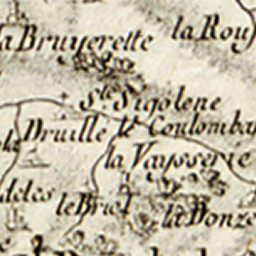 la Bruyerette
la Rou
Ste Sigolene
Druille
le Coulomba
la Vaysserie
deles
le Briel
la Bonze